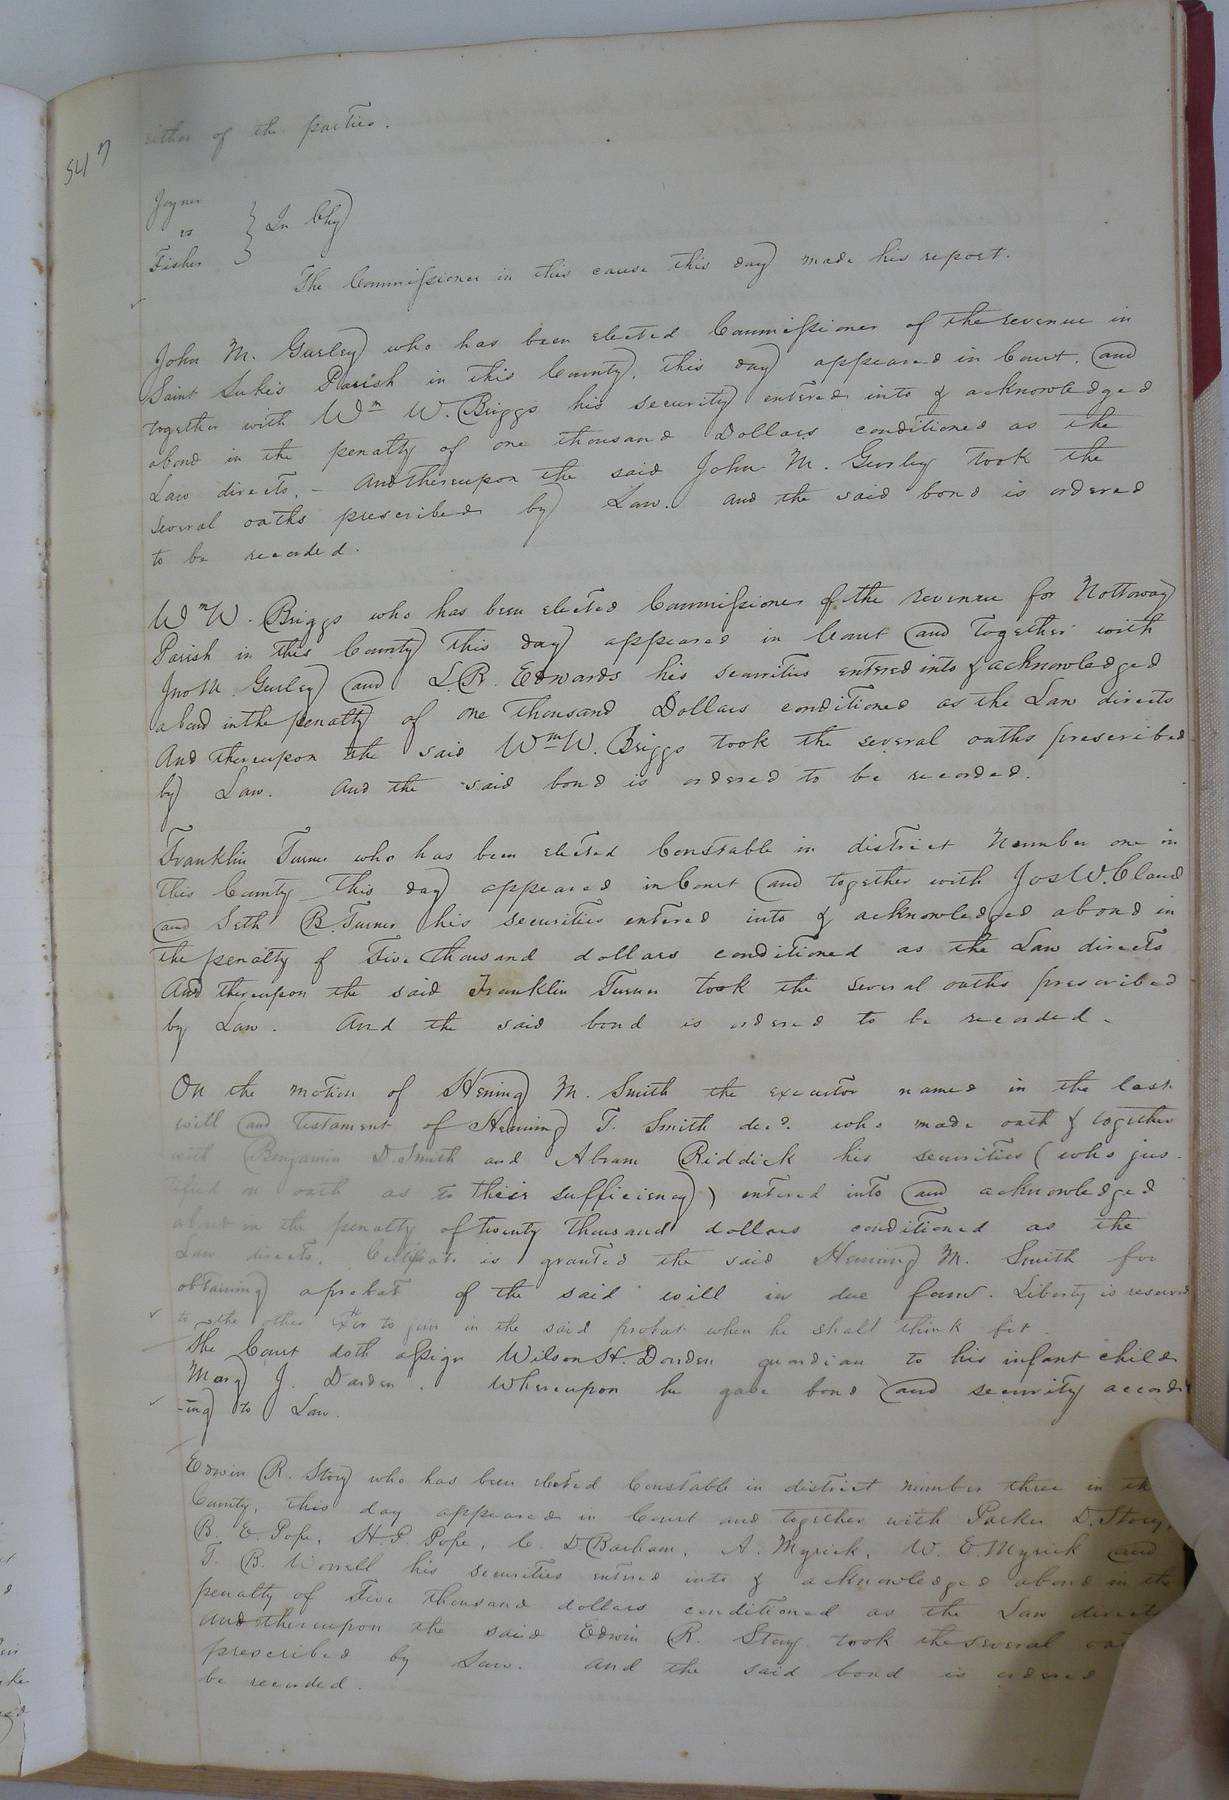 547
either of the parties.
Joyner
vs
Fisher
} In Chy
The Commissioner in this cause this day made his report.
John M. Gurley who has been elected Commissioner of the revenue in
Saint Luke's Parish in this County, this day appeared in Court, and
together with Wm W. Briggs his security entered into & acknowledged
abond in the penalty of one thousand Dollars conditioned as the
Law directs. – And thereupon the said John M. Gurley took the
several oaths prescribed by Law. And the said bond is ordered
to be recorded.
Wm W. Briggs who has been elected Commissioner of the revenue for Nottoway
Parish in this County this day appeared in Court and together with
Jno M. Gurley and L.R. Edwards his securities entered into & acknowledged
a bond in the penalty of one thousand Dollars conditioned as the Law directs
And thereupon the said Wm W. Briggs took the several oaths prescribed
by Law. And the said bond is ordered to be recorded.
Franklin Turner who has been elected Constable in district Number one in
this County this day appeared in Court and together with Jos W. Claud
and Seth B. Turner his securities entered into & acknowledged abond in
the penalty of Five thousand dollars conditioned as the Law directs
And thereupon the said Franklin Turner took the several oaths prescribed
by Law. And the said bond is ordered to be recorded.
On the motion of Hening M. Smith the executor named in the last
will and testament of Hening T. Smith decd. who made oath & together
with Benjamin D. Smith and Abram Riddick his securities (who jus-
tified on oath as to their sufficiency) entered into and acknowledged
abond in the penalty of twenty thousand dollars conditioned as the
Law directs. Certificate is granted the said Hening M. Smith for
obtaining a probat of the said will in due form. Liberty is reserved
to the other Exr to join in the said probat when he shall think fit
The Court doth assign Wilson H. Darden guardian to his infant child
Mary J. Darden. Whereupon he gave bond and security accord
-ing to Law.
Edwin R. Story who has been elected Constable in district number three in
County, this day appeared in Court and together with Parker D. Story,
B. E. Pope, H. P. Pope, C. D. Barham, A. Myrick, W. E. Myrick and
T. B. his securities entered into & acknowledged abond in the
penalty of Five thousand dollars conditioned as the Law directs
And thereupon the said Edwin R. Story took the several
prescribed by Law. And the said bond is ordered
be recorded.